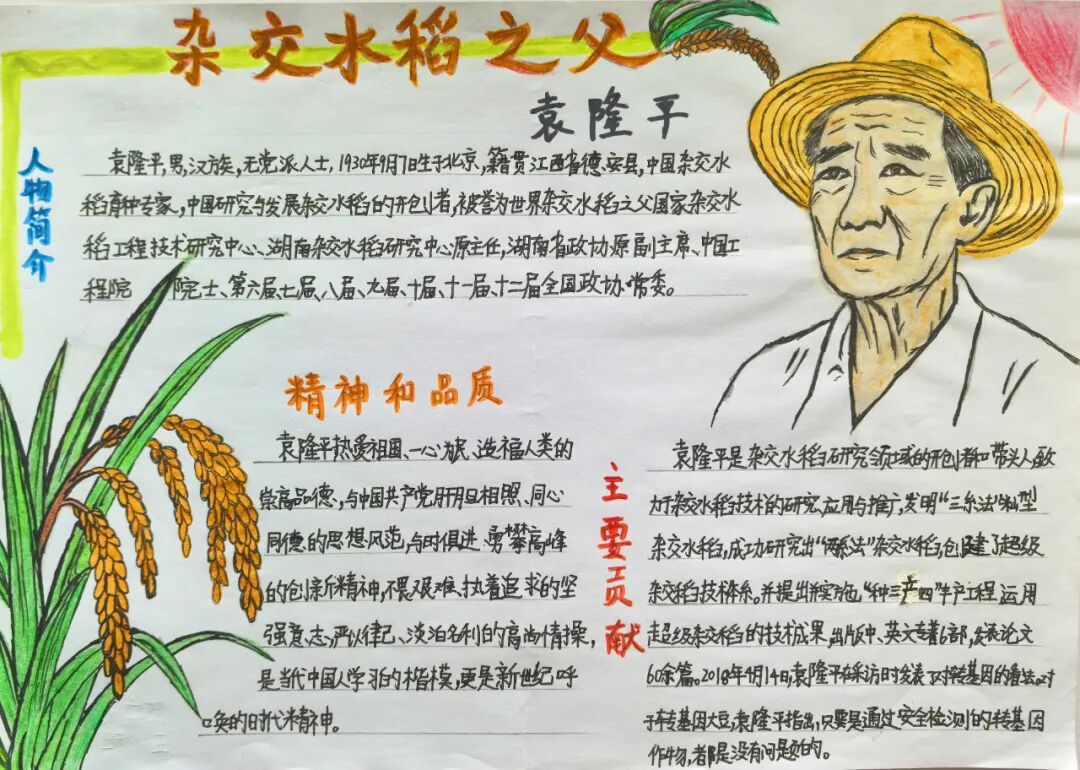 杂交水稻之父
袁隆平
人物简介
袁隆平,男,汉族,无党派人士,1930年9月7日生于北京,籍贯江西省德安县,中国杂交水
稻育种专家、中国研究与发展杂交水稻的开创者,被誉为世界杂交水稻之父国家杂交水
稻工程技术研究中心、湖南杂交水稻研究中心原主任,湖南省政协原副主席、中国工
程院 院士、第六届、七届、八届、九届、十届、十一届、十二届全国政协常委。
精神和品质
袁隆平热爱祖国、一心为民、造福人类的
崇高品德,与中国共产党肝胆相照、同心
同德的思想风范,与时俱进、勇攀高峰
的创新精神,不畏艰难、执着追求的坚
强意志,严以律己、淡泊名利的高尚情操,
是当代中国人学习的楷模,更是新世纪呼
唤的时代精神。
主要贡献
袁隆平是杂交水稻研究领域的开创者和带头人,致
力于杂交水稻技术的研究、应用与推广,发明“三系法”籼型
杂交水稻,成功研究出“两系法”杂交水稻,创建了超级
杂交稻技术体系。并提出并实施“种三产四”丰产工程 运用
超级杂交稻的技术成果,出版中、英文专著6部,发表论文
60余篇。2018年4月14日,袁隆平在采访时发表了对转基因的看法。对
于转基因大豆,袁隆平指出,只要是通过安全检测的转基因
作物,都是没有问题的。